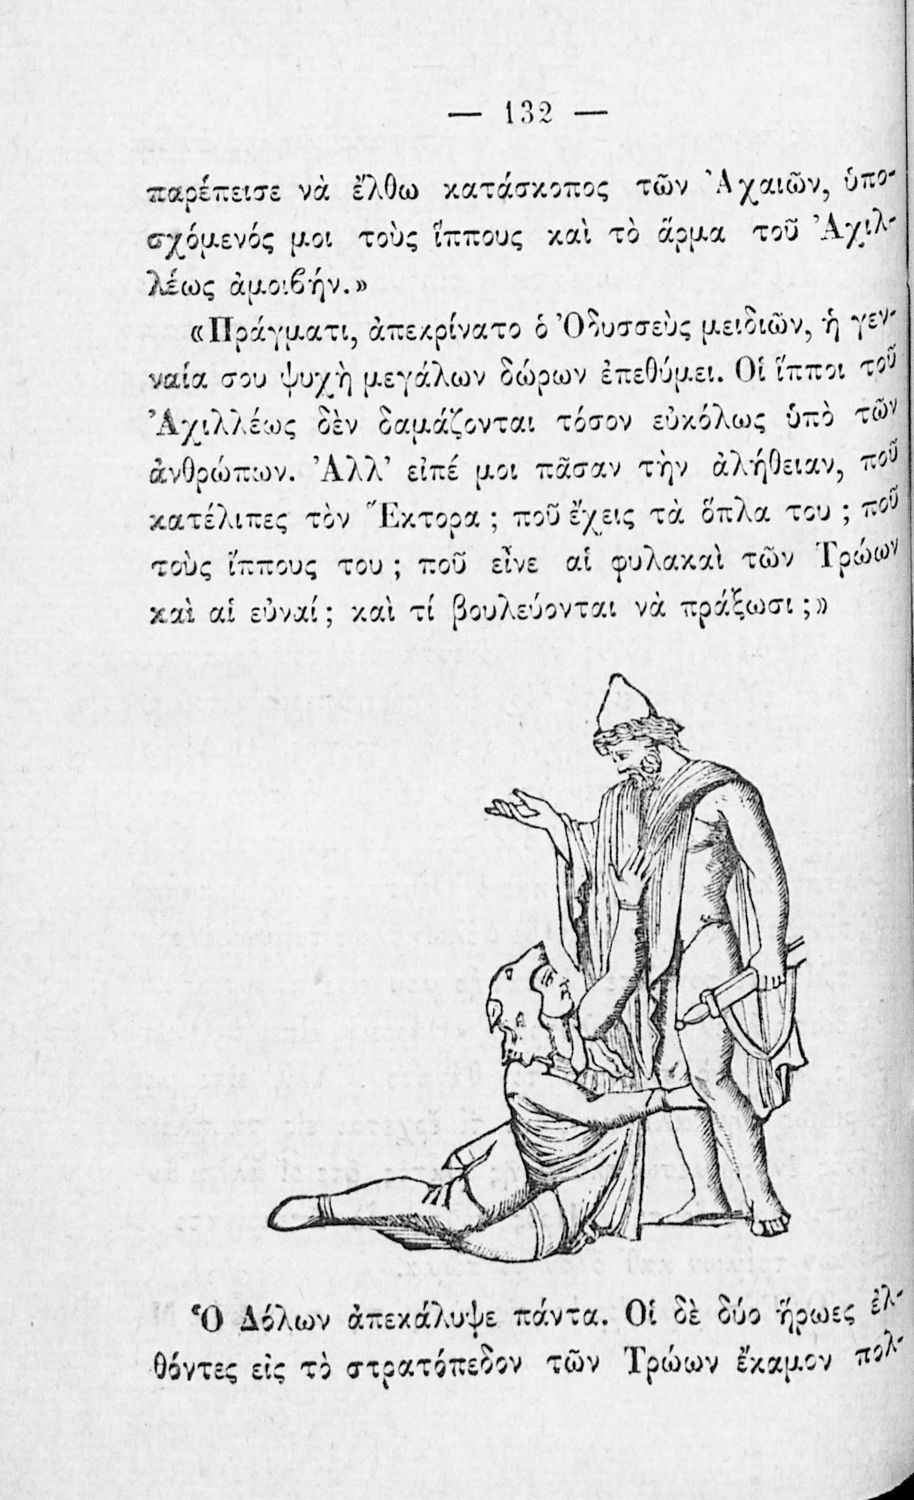 — 132 —
παρέπεισε νὰ ἔλθω κατάσκοπος τῶν Ἀχαιῶν, ὑπο-
σχόμενός μοι τοὺς ἵππους καὶ τὸ ἅρμα τοῦ Ἀχιλ-
λέως ἀμοιβήν.»
«Πράγματι, ἀπεκρίνατο ὁ Ὀδυσσεὺς μειδιῶν, ἡ γεν-
ναία σου ψυχὴ μεγάλων δώρων ἐπεθύμει. Οἱ ἵπποι τοῦ
Ἀχιλλέως δὲν δαμάζονται τόσον εὐκόλως ὑπὸ τῶν
ἀνθρώπων. Ἀλλ’ εἰπέ μοι πᾶσαν τὴν ἀλήθειαν, ποῦ
κατέλιπες τὸν Ἕκτορα ; ποῦ ἔχεις τὰ ὅπλα του ; ποῦ
τοὺς ἵππους του ; ποῦ εἶνε αἱ φυλακαὶ τῶν Τρώων
καὶ αἱ εὐναί ; καὶ τί βουλεύονται νὰ πράξωσι ;»
Ὁ Δόλων ἀπεκάλυψε πάντα. Οἱ δὲ δύο ἥρωες ἐλ-
θόντες εἰς τὸ στρατόπεδον τῶν Τρώων ἔκαμον πολ-